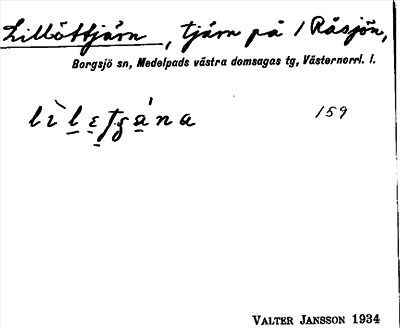 Lillöttjärn, tjärn på / Råsjön,
Borgsjö sn, Medelpads västra domsagas tg, Västernorrl. l.
159
VALTER JANSSON 1934